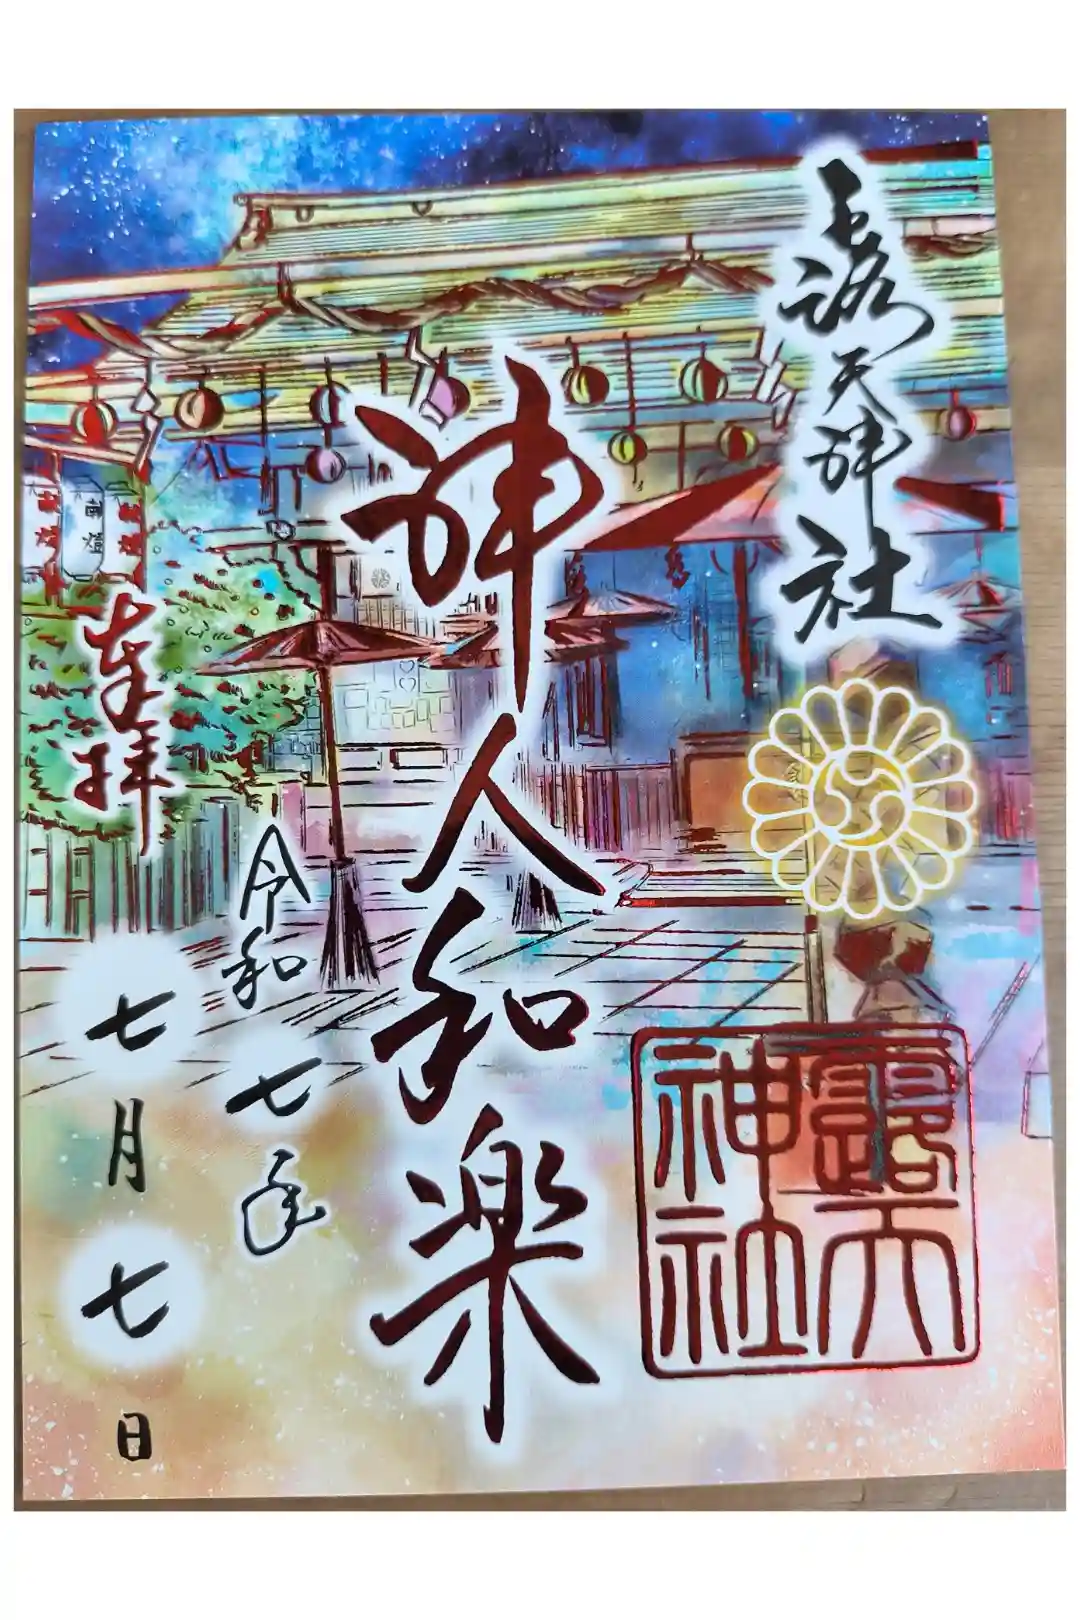 露天神社
露天
神社
神人和楽
奉拝
令和七年
七月七日
献燈